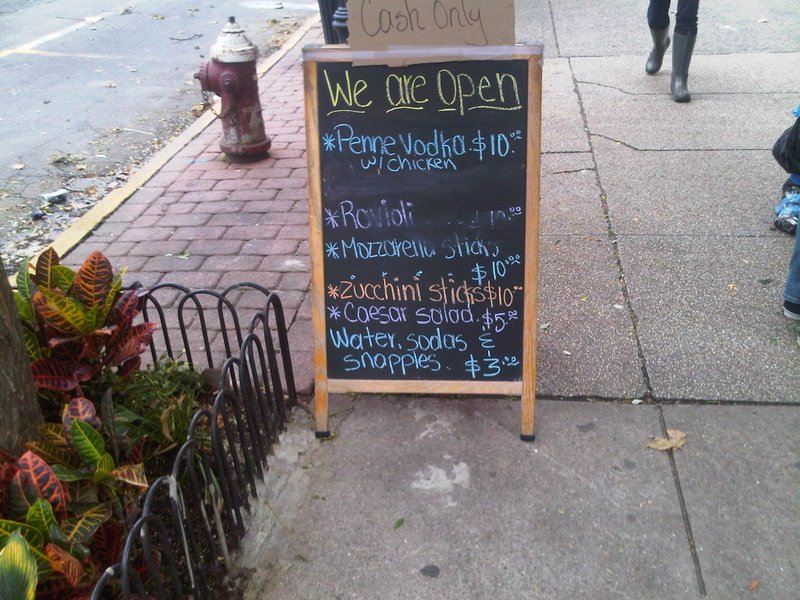 Cash Only
We are Open
*Penne Vodka $10.00
w/ chicken
*Ravioli $10.00
*Mozzarella sticks
$10.00
*Zucchini sticks $10.00
*Caesar salad. $5.00
Water, sodas &
snapples. $3.00